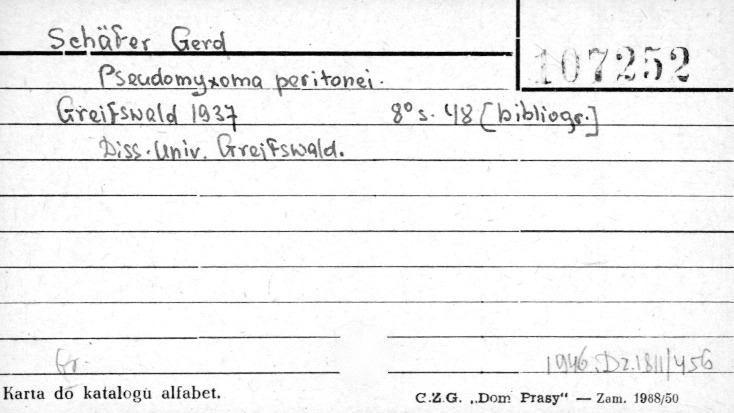 Schäfer Gerd
107252
Pseudomyxoma peritonei.
Greifswald 1937 8° s. 48 [bibliogr.]
Diss. Univ. Greifswald.
1946.Dz.1811/456
Karta do katalogu alfabet.
C.Z.G. „Dom Prasy“ — Zam. 1988/50